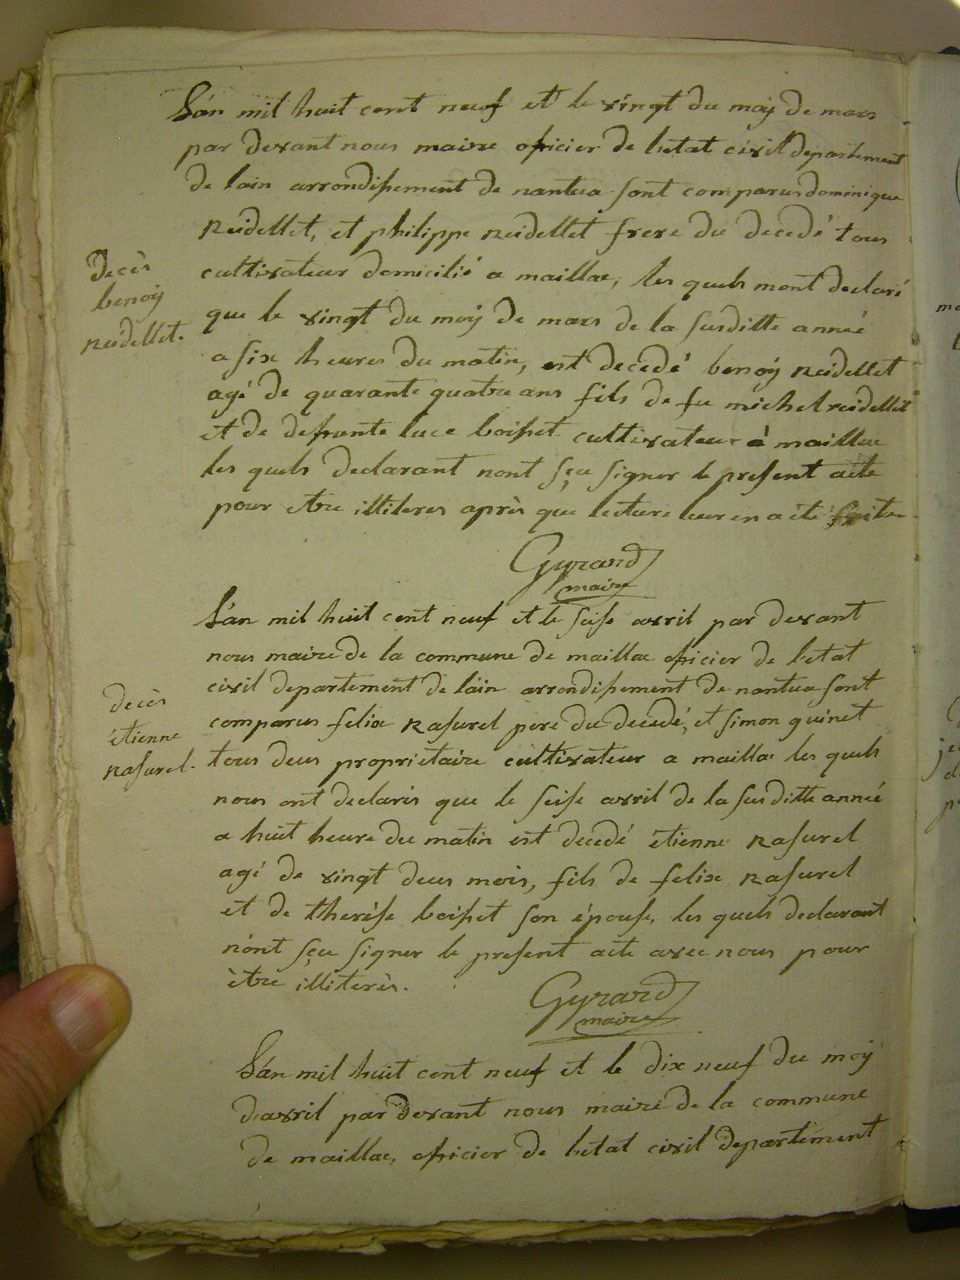 L'an mil huit cent neuf et le vingt du moy de mars
par devant nous maire oficier de l'etat civil departement
de lain arrondissement de nantua sont comparus dominique
Reidellet, et philippe Reidellet frere du decedé tous
cultivateur domicilié a maillac, les quels mont declaré
que le vingt du moy de mars de la susditte année
a six heures du matin, est decedé benoy Reidellet
agé de quarante quatre ans fils de fu michel reidellet
et de defunte luce boisset cultivateur à maillac
les quels declarant nont sçu signer le present acte
pour etre illiteres après que lecture leur en a été faite
Decès
benoy
reidellet.
Gyrard
maire
L'an mil huit cent neuf et le seise avril par devant
nous maire de la commune de maillac oficier de l'etat
civil departement de l'ain arrondissement de nantua sont
comparus felix Rasurel pere du decedé, et simon guinet
tous deus propriétaire cultivateur a maillac les quels
nous ont declarés que le seise avril de la susditte année
a huit heure du matin est decedé étienne Rasurel
agé de vingt deus mois, fils de felix Rasurel
et de therése boisset son épouse, les quels declarant
n'ont sçu signer le present acte avec nous pour
ètre illiterès.
decès
étienne
Rasurel.
Gyrard
maire
L'an mil huit cent neuf et le dix neuf du moy
d'avril par devant nous maire de la commune
de maillac, oficier de l'etat civil departement